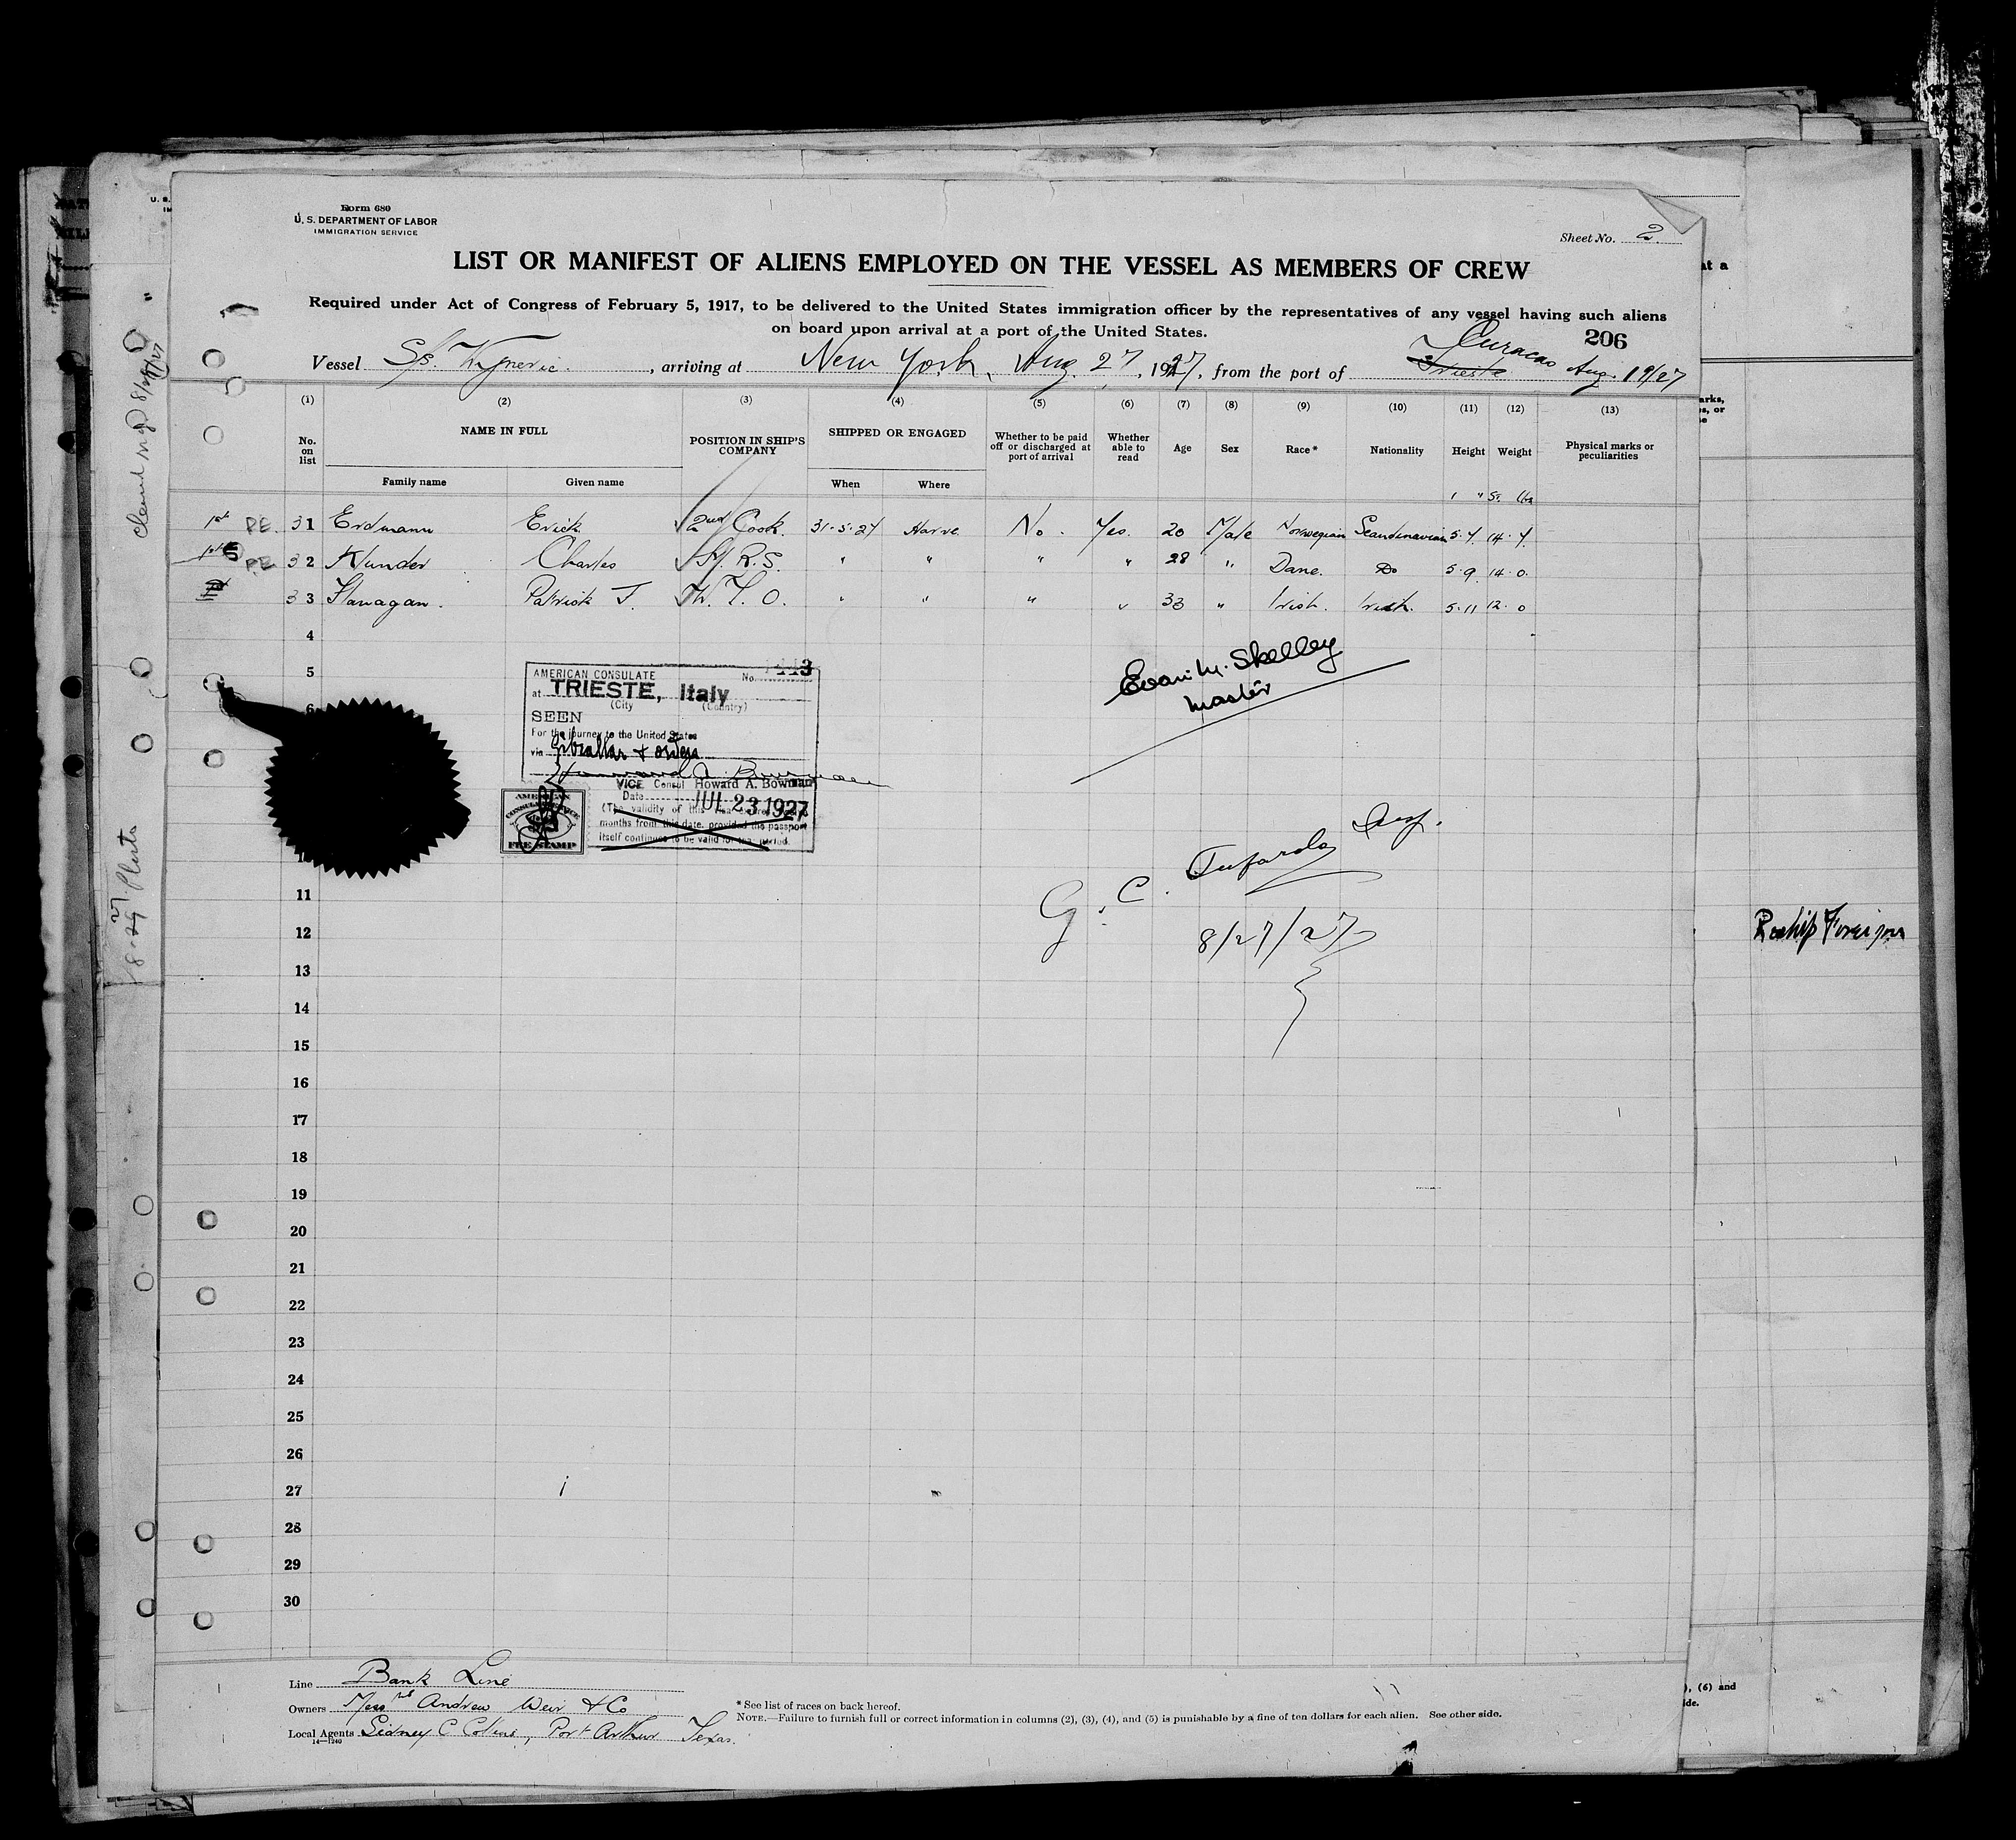 Form 680
U. S. DEPARTMENT OF LABOR
IMMIGRATION SERVICE
Sheet No. 2.
LIST OR MANIFEST OF ALIENS EMPLOYED ON THE VESSEL AS MEMBERS OF CREW
Required under Act of Congress of February 5, 1917, to be delivered to the United States immigration officer by the representatives of any vessel having such aliens
on board upon arrival at a port of the United States.
206
Vessel S/S. , arriving at New York, Aug. 27, 1927, from the port of Trieste Curacao Aug. 19/27
(1) (2) (3) (4) (5) (6) (7) (8) (9) (10) (11) (12) (13)
No. on list NAME IN FULL POSITION IN SHIP'S COMPANY SHIPPED OR ENGAGED Whether to be paid off or discharged at port of arrival Whether able to read Age Sex Race* Nationality Height Weight Physical marks or peculiarities
Family name Given name When Where
1st P.E. 31 Erdmann Erick 2nd Cook. 31-5-27 Havre No. Yes. 20 Male Norwegian Scandinavian 5.7. 14.7.
P.E. 32 Klunder Charles " " " " 28 " Dane. Do 5.9. 14.0.
33 Flanagan. Patrick J. W. T. O. " " " " 33 " Irish. Irish. 5.11 12.0
4
5
6
11
12
13
14
15
16
17
18
19
20
21
22
23
24
25
26
27
28
29
30
AMERICAN CONSULATE No.
at TRIESTE, Italy
(City (Country)
SEEN
For the journey to the United States
via Gibraltar & orders
VICE Consul Howard A. Bowman
Date JUL 23 1927
(The validity of this visa
months from this date, provided the passport
itself continues to be valid for the period.
AMERICAN
CONSULAR SERVICE
FEE STAMP
Evan M. Skelley
Master
G. C. Tufarolo Insp.
8/27/27
Reship Foreign
Line Bank Line
Owners Messrs Andrew Weir & Co
Local Agents Sidney C Collins, Port Arthur Texas.
14—1240
* See list of races on back hereof.
NOTE.—Failure to furnish full or correct information in columns (2), (3), (4), and (5) is punishable by a fine of ten dollars for each alien. See other side.